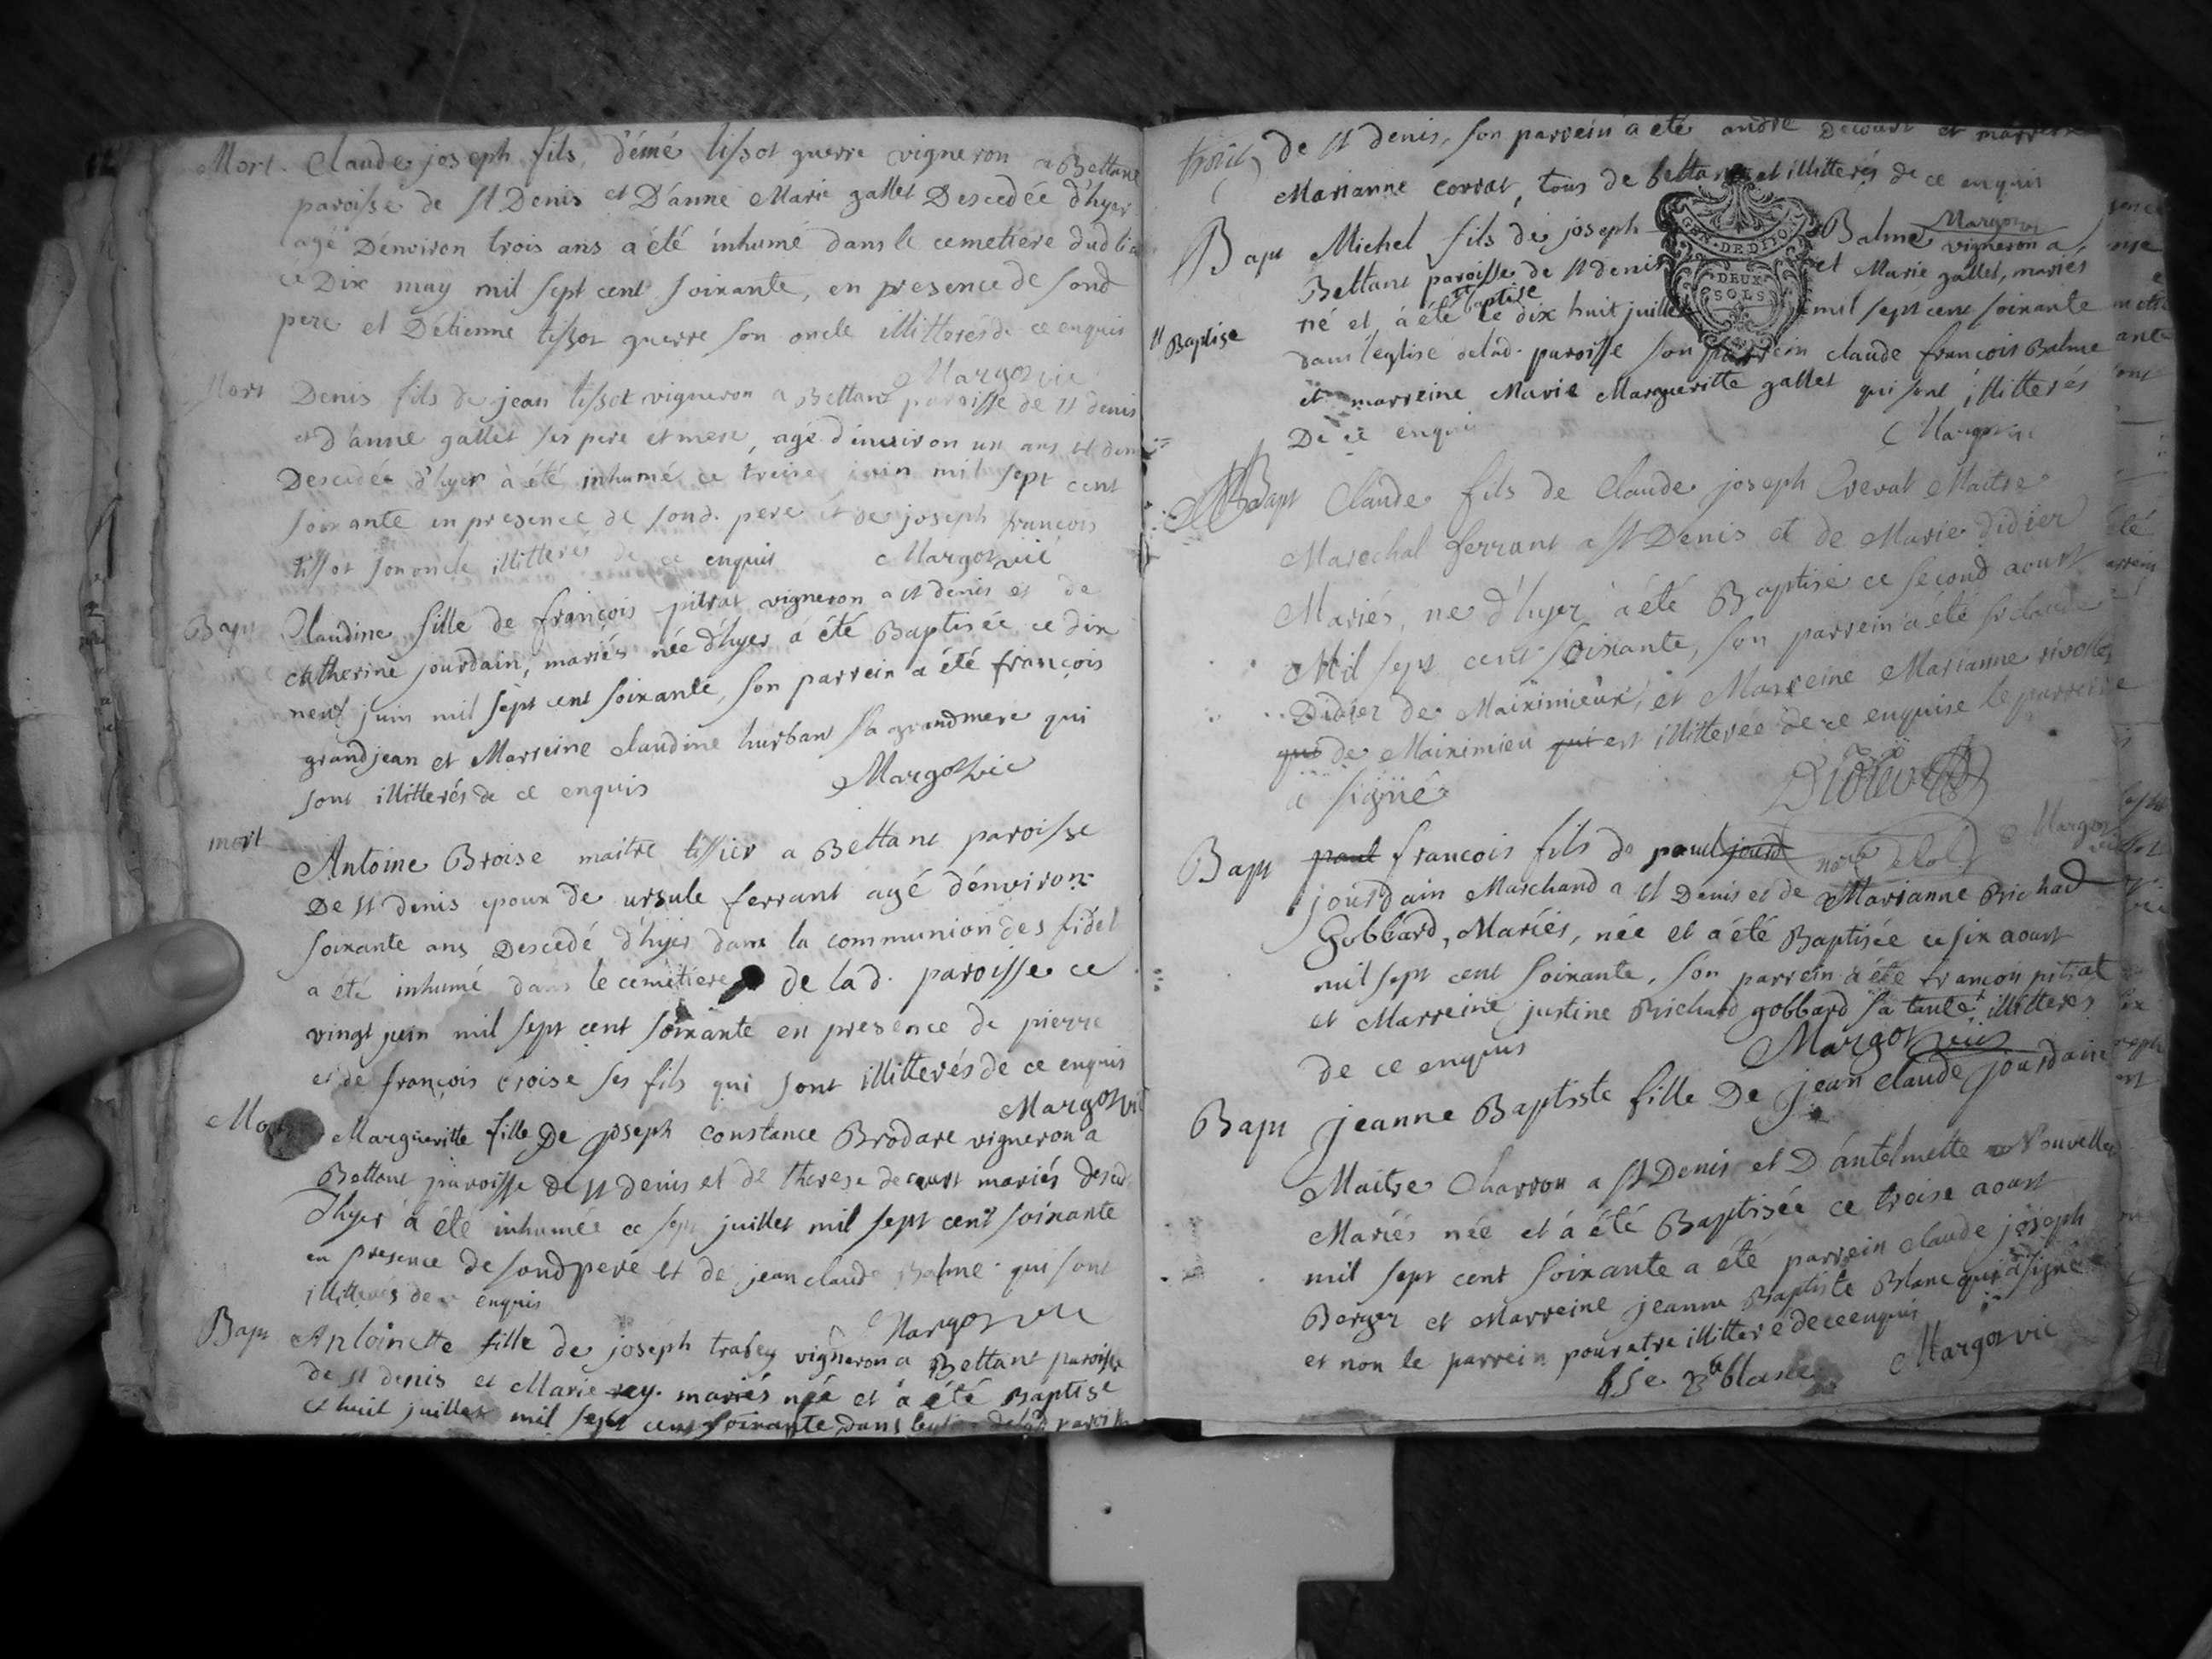 Mort. Claude joseph fils d'émé tissot guerre vigneron a Bettant
paroisse de st Denis et D'anne Marie gallet Descedée d'hyer
agé D'environ trois ans a été inhumé dans le cemetiere dud lieu
ce Dix may mil sept cent soixante, en presence de sond
pere et D'étienne tissot guerre son oncle illitterés de ce enquis
Margot vic
Mort Denis fils de jean tissot vigneron a Bettant paroisse de st denis
et d'anne gallet ses pere et mere, agé d'environ un ans et demi
Descedée d'hyer à été inhumé ce treise juin mil sept cent
soixante en presence de sond. pere et de joseph françois
tissot son oncle illitterés de ce enquis Margot vic
Bapt Claudine fille de françois pitrat vigneron a st denis et de
catherine jourdain, mariés née d'hyer a été Baptisée ce dix
neuf juin mil sept cent soixante, son parrein a été françois
grandjean et Marreine claudine hurbant sa grandmere qui
sont illitterés de ce enquis Margot vic
mort Antoine Broise maitre tissier a Bettant paroisse
De st denis epoux de ursule ferrant agé d'environ
soixante ans Descedé d'hyer dans la communion des fidel
a été inhumé dans le cemetiere de lad. paroisse ce
vingt juin mil sept cent soixante en presence de pierre
et de françois broise ses fils qui sont illitterés de ce enquis
Margot vic
Mort Margueritte fille De joseph constance Brodare vigneron a
Bettant paroisse de st denis et de therese decourt mariés desced
d'hyer a été inhumée ce sept juillet mil sept cent soixante
en presence de sond pere et de jean claude Balme qui sont
illitterés de ce enquis
Margot vic
Bapt Antoinette fille de joseph trabey vigneron a Bettant paroisse
de st denis et Marie rey mariés née et a été Baptise
ce huit juillet mil sept cent soixante dans leglise de lad paroisse
de st denis, son parrein a eté andré Decourt et marreine
Marianne corrat, tous de bettant et illitterés de ce enquis
Margot vic
GEN. DE DIJON
DEUX
SOLS
Bapt Michel fils de joseph Balme vigneron a
Bettant paroisse de st denis et Marie gallet, mariés
né et à été baptisé le dix huit juillet mil sept cent soixante
st Baptise
dans l'eglise de lad. paroisse son parrein claude françois Balme
et marreine Marie Margueritte gallet qui sont illitterés
De ce enquis Margot vic
Bapt Claude fils de Claude joseph Cheval Maitre
Marechal ferrant a st Denis et de Marie didier
Mariés, ne d'hyer à été Baptisé ce second aoust
Mil sept cent soixante, son parrein a été sr claude
Didier de Maiximieux, et Marreine Marianne
qui de Maiximieu qui est illitterée de ce enquise le parreine
a signé Didier
Margot vic
Bapt paul francois fils de paul jourd
jourdain Marchand a st Denis et de Marianne Richard
Gobbard, Mariés, née et a été Baptisée ce six aoust
mil sept cent soixante, son parrein a été françois pitrat
et Marreine justine Richard gobbard sa tante illitteres
de ce enquis Margot vic
Bapt jeanne Baptiste fille De jean claude jourdain
Maitre Charron a st Denis et D'antelmette Nouvelle
Mariés née et á été Baptisée ce treise aoust
mil sept cent soixante a été parrein claude joseph
Berger et Marreine jeanne Baptiste Blanc qui a signé
et non le parrein pour etre illitteré de ce enquis
blanc Margot vic